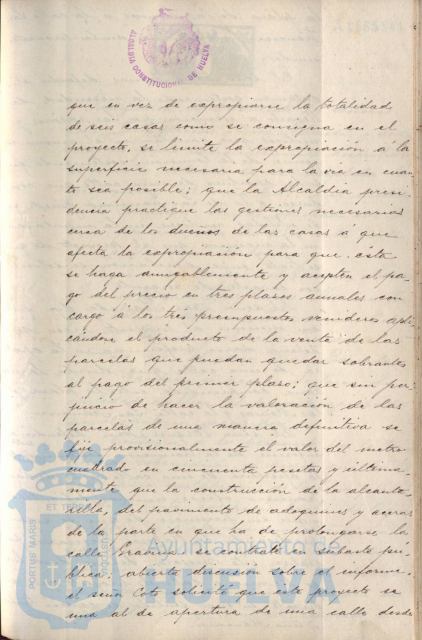 ALCALDIA CONSTITUCIONAL DE HUELVA
que en vez de expropiarse la totalidad
de seis casas como se consigna en el
proyecto, se limite la expropiación á la
superficie necesaria para la via en cuan
to sea posible; que la Alcaldia presi-
dencia practique las gestiones necesarias
cerca de los dueños de las casas a que
afecta la expropiación para que ésta
se haga amigablemente y acepten el pa-
go del precio en tres plazos anuales con
cargo á los tres presupuestos venideros apli-
cándose el producto de la venta de las
parcelas que puedan quedar sobrantes
al pago del primer plazo; que sin per-
juicio de hacer la valoración de las
parcelas de una manera definitiva se
fije provisionalmente el valor del metro
cuadrado en cincuenta pesetas y última-
mente que la construcción de la alcanta-
rilla, del pavimento de adoquines y aceras
de la parte en que ha de prolongarse la
calle se contrate en subasta pú-
blica. abierta discusión sobre el informe
el señor Coto solicitó que este proyecto se
una al de apertura de una calle desde
PORTUS MARIS
ET TE
Ayuntamiento de
HUELVA